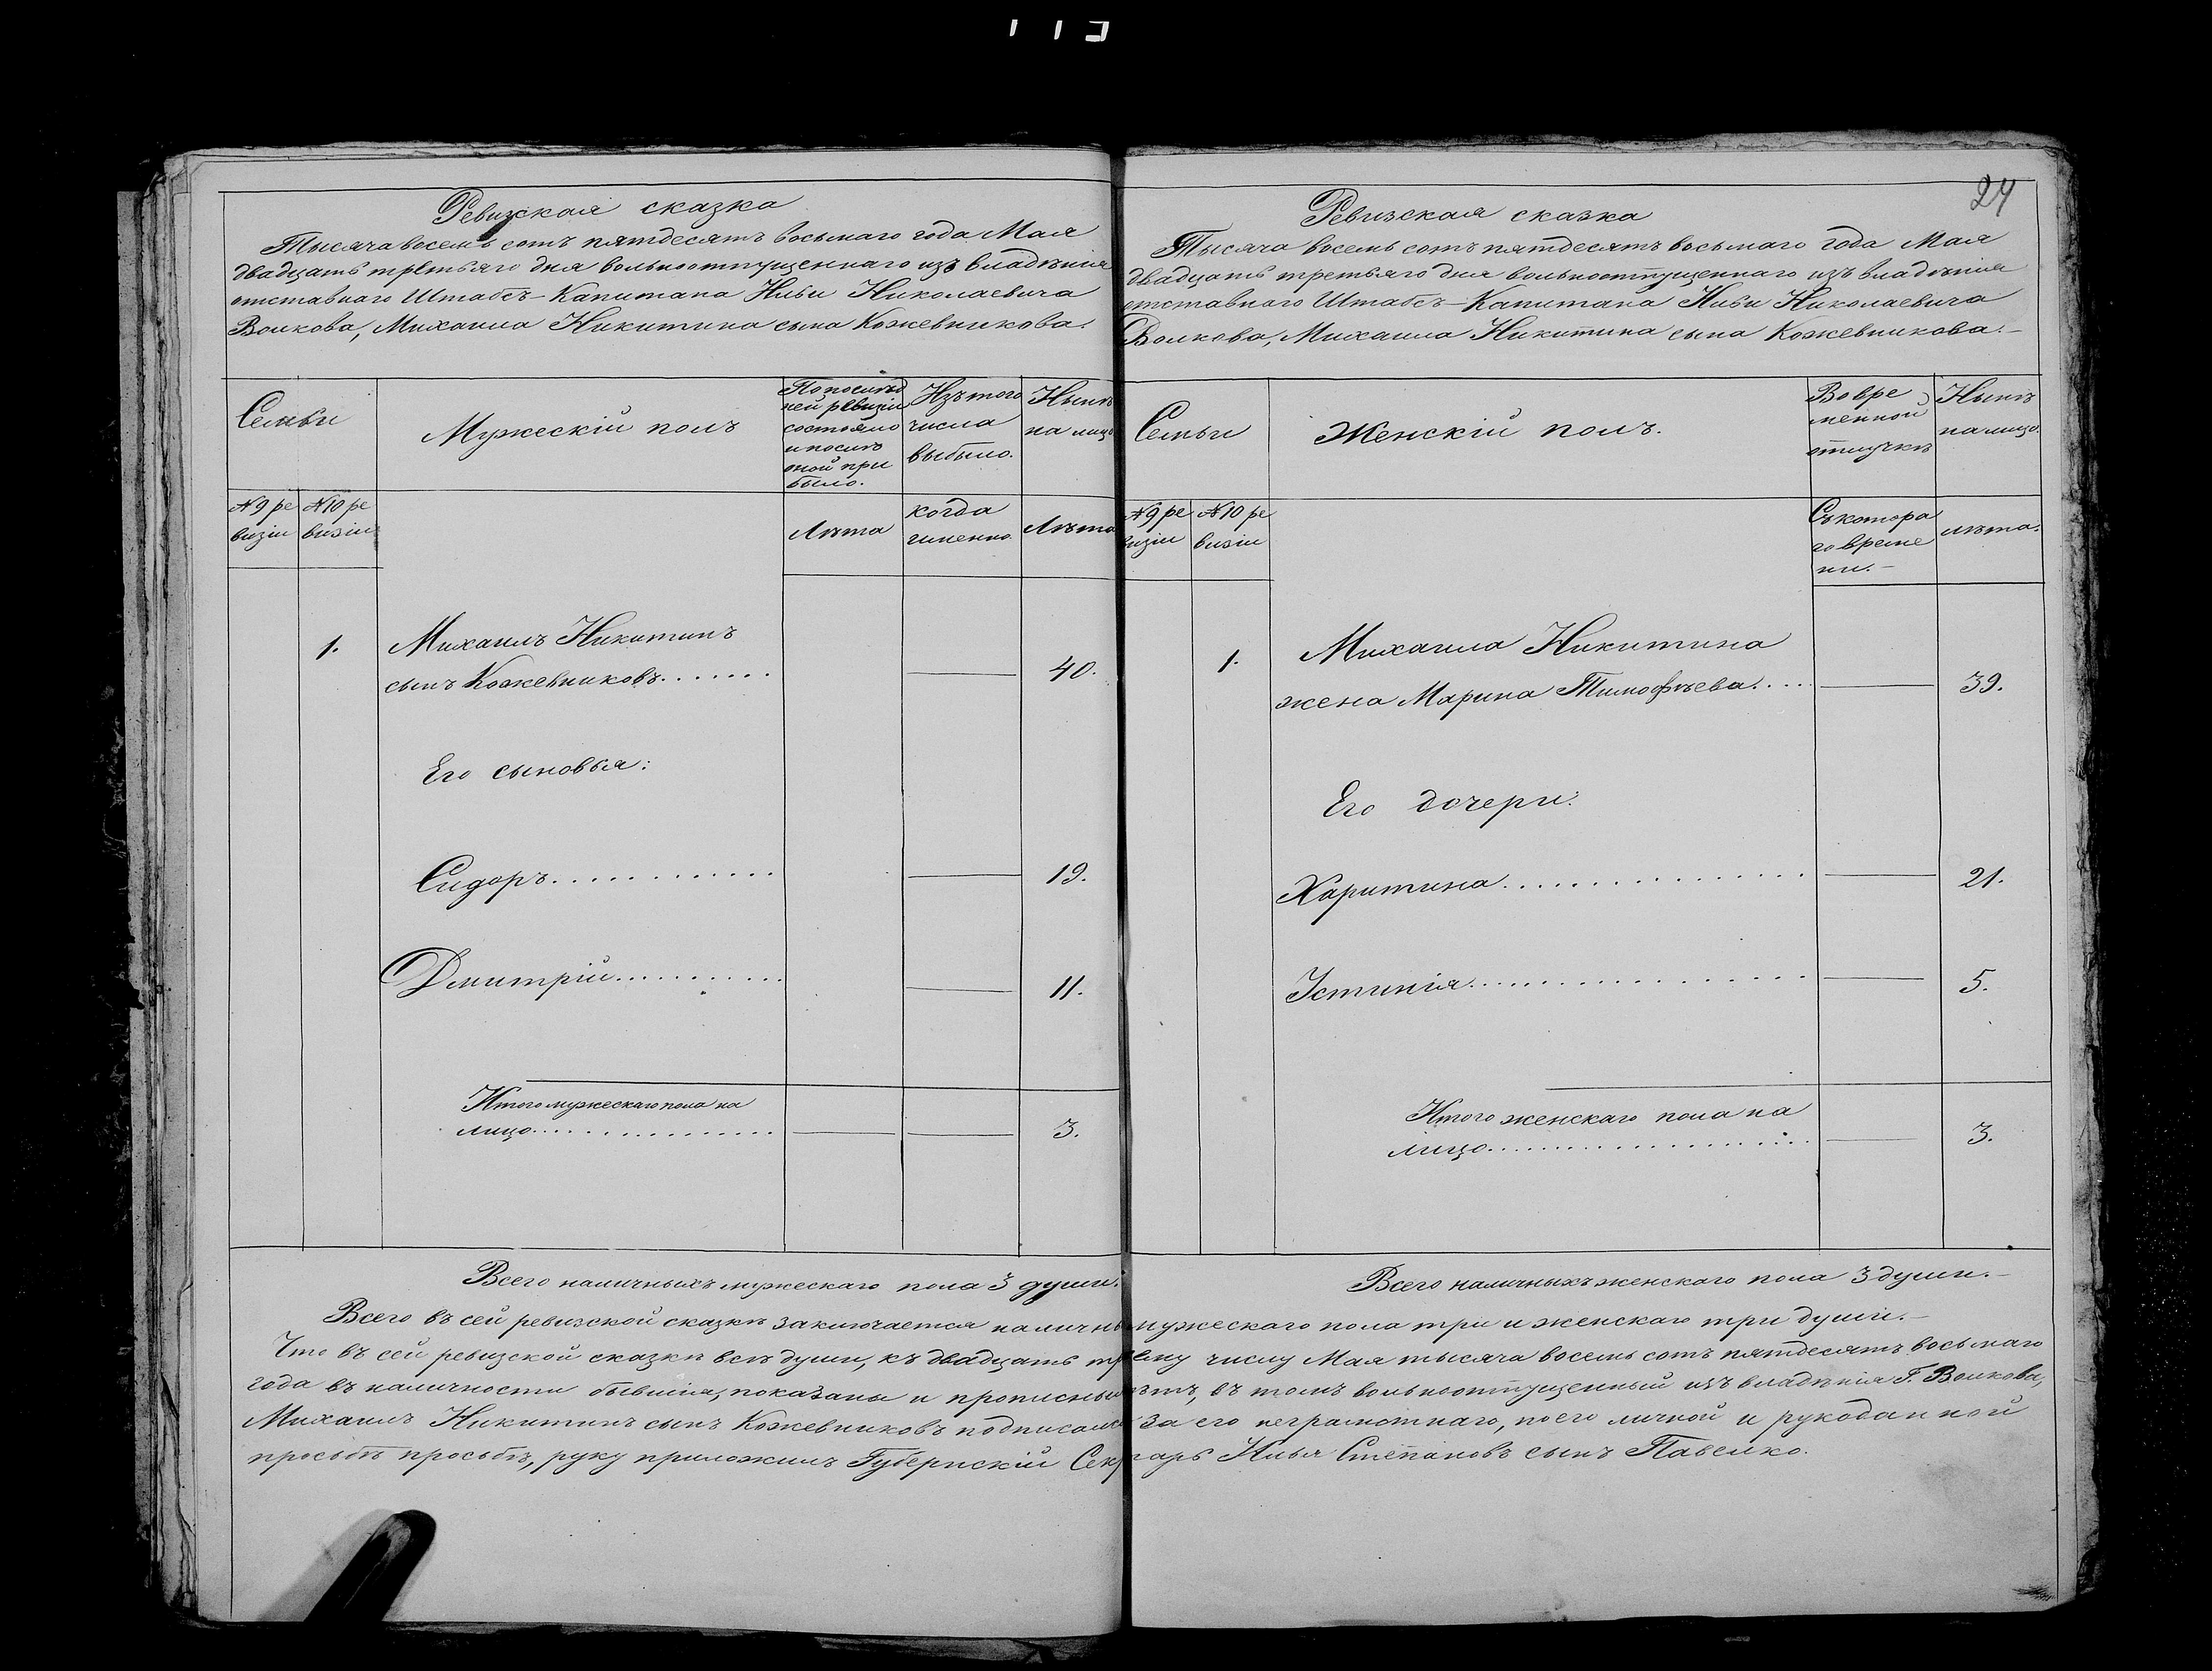 Ревизская сказка
Тысяча восемь сотъ пятдесятъ восьмаго года Мая
двадцать третьяго дня вольноотпущеннаго изъ владѣнія
отставнаго Штабсъ-Капитана Ильи Николаевича
Волкова, Михаила Никитина сына Кожевникова.
Семьи
Мужескій полъ
По послѣд
ней ревизіи
состояло
и послѣ
оной при
было.
Изъ того
числа
выбыло.
Нынѣ
на лицо
№ 9 ре
визіи
№ 10 ре
визіи
Лѣта
когда
именно
Лѣта
1.
Михаилъ Никитинъ
сынъ Кожевниковъ....... 40.
Его сыновья:
Сидоръ............. 19.
Дмитрій........... 11.
Итого мужескаго пола на
лицо................. 3.
Всего наличныхъ мужескаго пола 3 души.
24
Ревизская сказка
Тысяча восемь сотъ пятдесятъ восьмаго года Мая
двадцать третьяго дня вольноотпущеннаго изъ владѣнія
отставнаго Штабсъ-Капитана Ильи Николаевича
Волкова, Михаила Никитина сына Кожевникова.-
Семьи
Женскій полъ.
Во вре
менной
отлучкѣ
Нынѣ
на лицо.
№ 9 ре
визіи
№ 10 ре
визіи
Съ котора
го време
ни.-
лѣта.
1.
Михаила Никитина
жена Марина Тимофѣева.... 39.
Его дочери:
Харитина................ 21.
Устинія................ 5.
Итого женскаго пола на
лицо..................... 3.
Всего наличныхъ женскаго пола 3 души.-
Всего въ сей ревизской сказкѣ заключается наличн мужескаго пола три и женскаго три души.-
Что въ сей ревизской сказкѣ всѣ души, къ двадцать тр ему числу Мая тысяча восемь сотъ пятдесятъ восьмаго
года въ наличности бывшія, показаны и прописны ѣтъ, въ томъ вольноотпущенный изъ владѣнія Г. Волкова,
Михаилъ Никитинъ сынъ Кожевниковъ подписал за его неграмотнаго, по его личной и рукоданной
просьбѣ просьбѣ, руку приложилъ Губернскій Секр тарь Илья Степановъ сынъ Павелко.